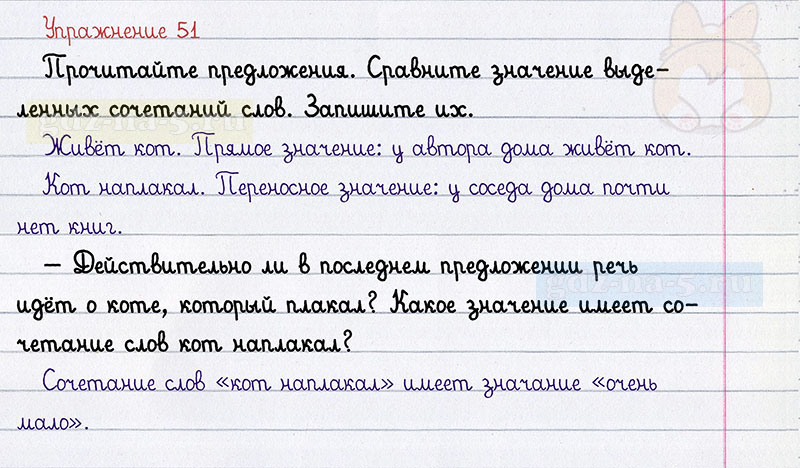 Упражнение 51
Прочитайте предложения. Сравните значение выде-
ленных сочетаний слов. Запишите их.
gdz-na-5.ru
Живёт кот. Прямое значение: у автора дома живёт кот.
Кот наплакал. Переносное значение: у соседа дома почти
нет книг.
– Действительно ли в последнем предложении речь
gdz-na-5.ru
идёт о коте, который плакал? Какое значение имеет со-
четание слов кот наплакал?
Сочетание слов «кот наплакал» имеет значание «очень
мало».